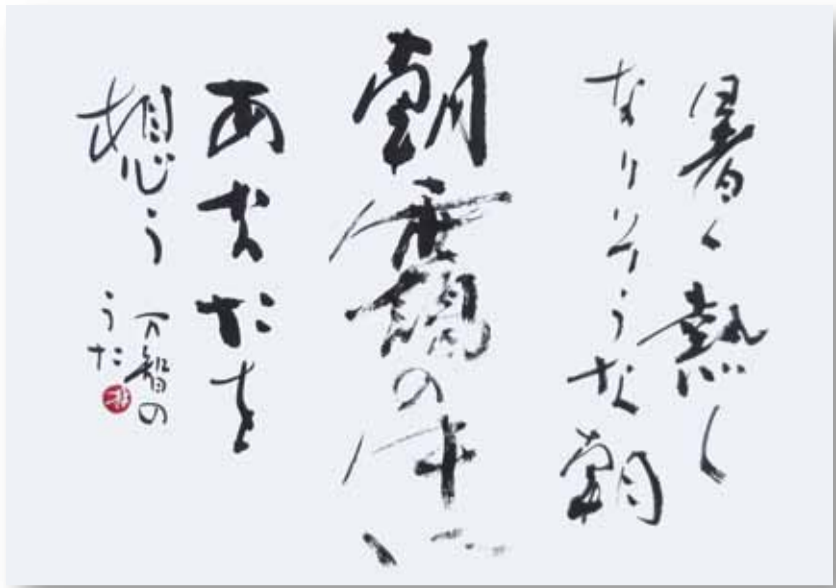 暑く熱く
なりそうな朝
朝靄の中に
あなたを
想う
万智の
うた